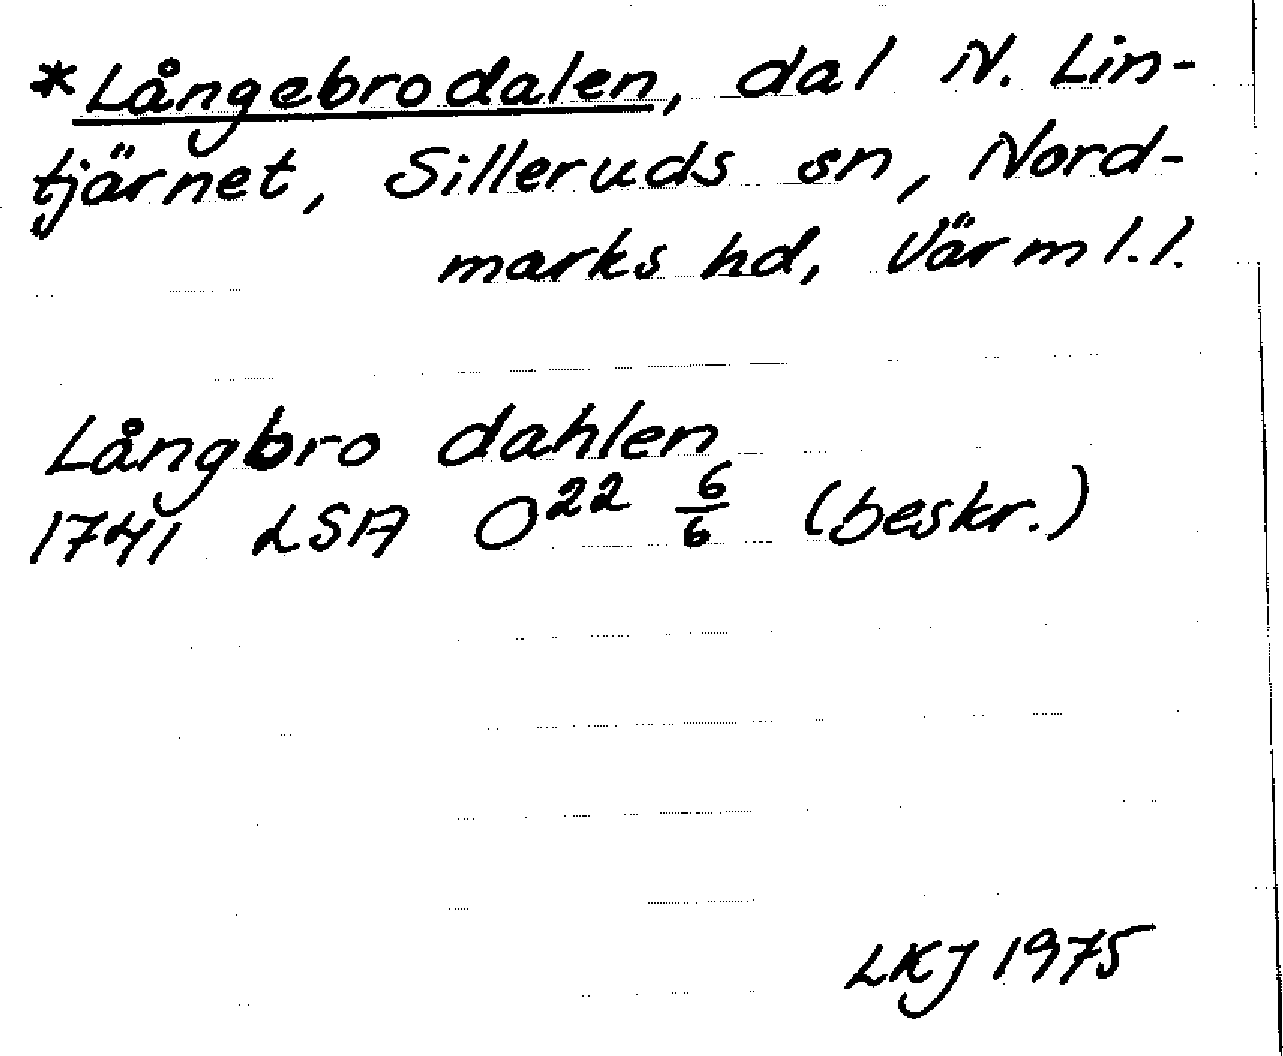 *Långebrodalen, dal N. Lin-
tjärnet, Silleruds sn, Nord-
marks hd, Värml.l.
Långbro dahlen
1741 LSA O22 6/6 (beskr.)
LKJ 1975